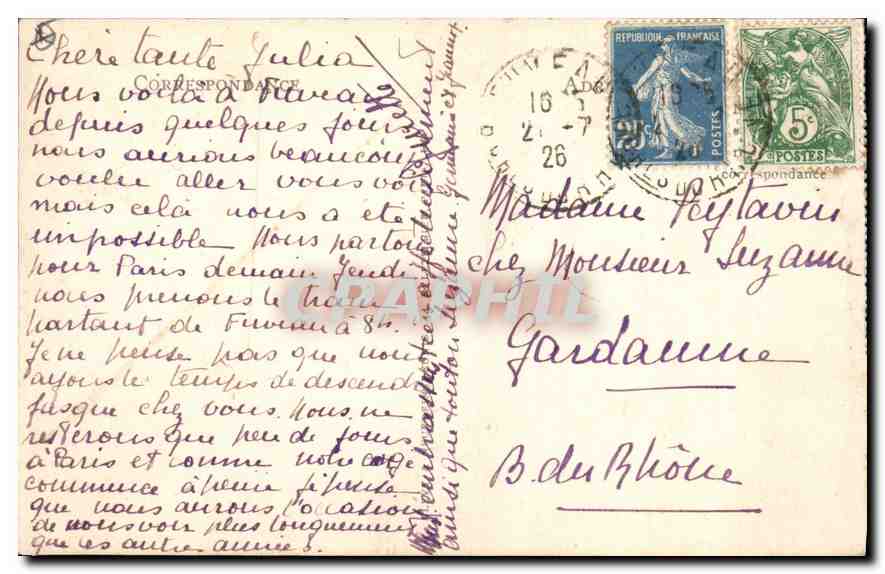 Chère tante Julia
CORRESPONDANCE
Nous voilà à Fuveau
depuis quelques jours
nous aurions beaucoup
voulu aller vous voir
mais cela nous a été
impossible Nous partons
pour Paris demain Jeudi
nous prenons le train
partant de Fuveau à 8h.
Je ne pense pas que nous
ayons le temps de descendre
jusque chez vous. Nous ne
resterons que peu de jours
à Paris et comme notre congé
commence à peine je pense
que nous aurons l'occasion
de vous voir plus longuement
que les autres années.
embrassons bien affectueusement
ainsi que tonton Suzanne
REPUBLIQUE FRANÇAISE
25c
POSTES
5c
POSTES
16
21 -7
26
correspondance
Madame Peytavin
chez Monsieur Suzanne
Gardanne
B. du Rhône
CPAPHIL